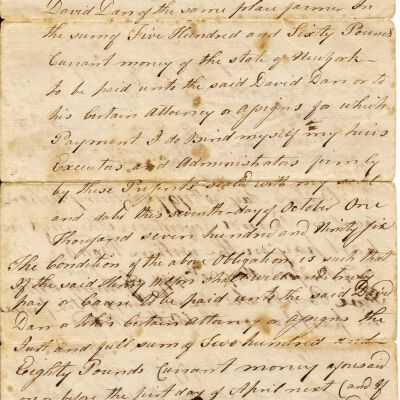 David Dan of the same place farmer In
the sum of Five Hundred and Sixty Pounds
Currant money of the state of Newyork
to be paid unto the said David Dan or to
his Certain Attorney or assigns for which
Payment I do Bind myself my heirs
Executors and Administrators firmly
by these Presents seald with my seal
and dated this seventh day of October One
Thousand seven hundred and Ninty six
The Condition of the above Obligation is such that
If the said Henry shall well and truly
pay or Cause to be paid unto the said David
Dan or his Certain attorney or assigns the
Just and full sum of Two hundred and
Eighty Pounds Currant money aforesaid
on or before the first day of April next (and if